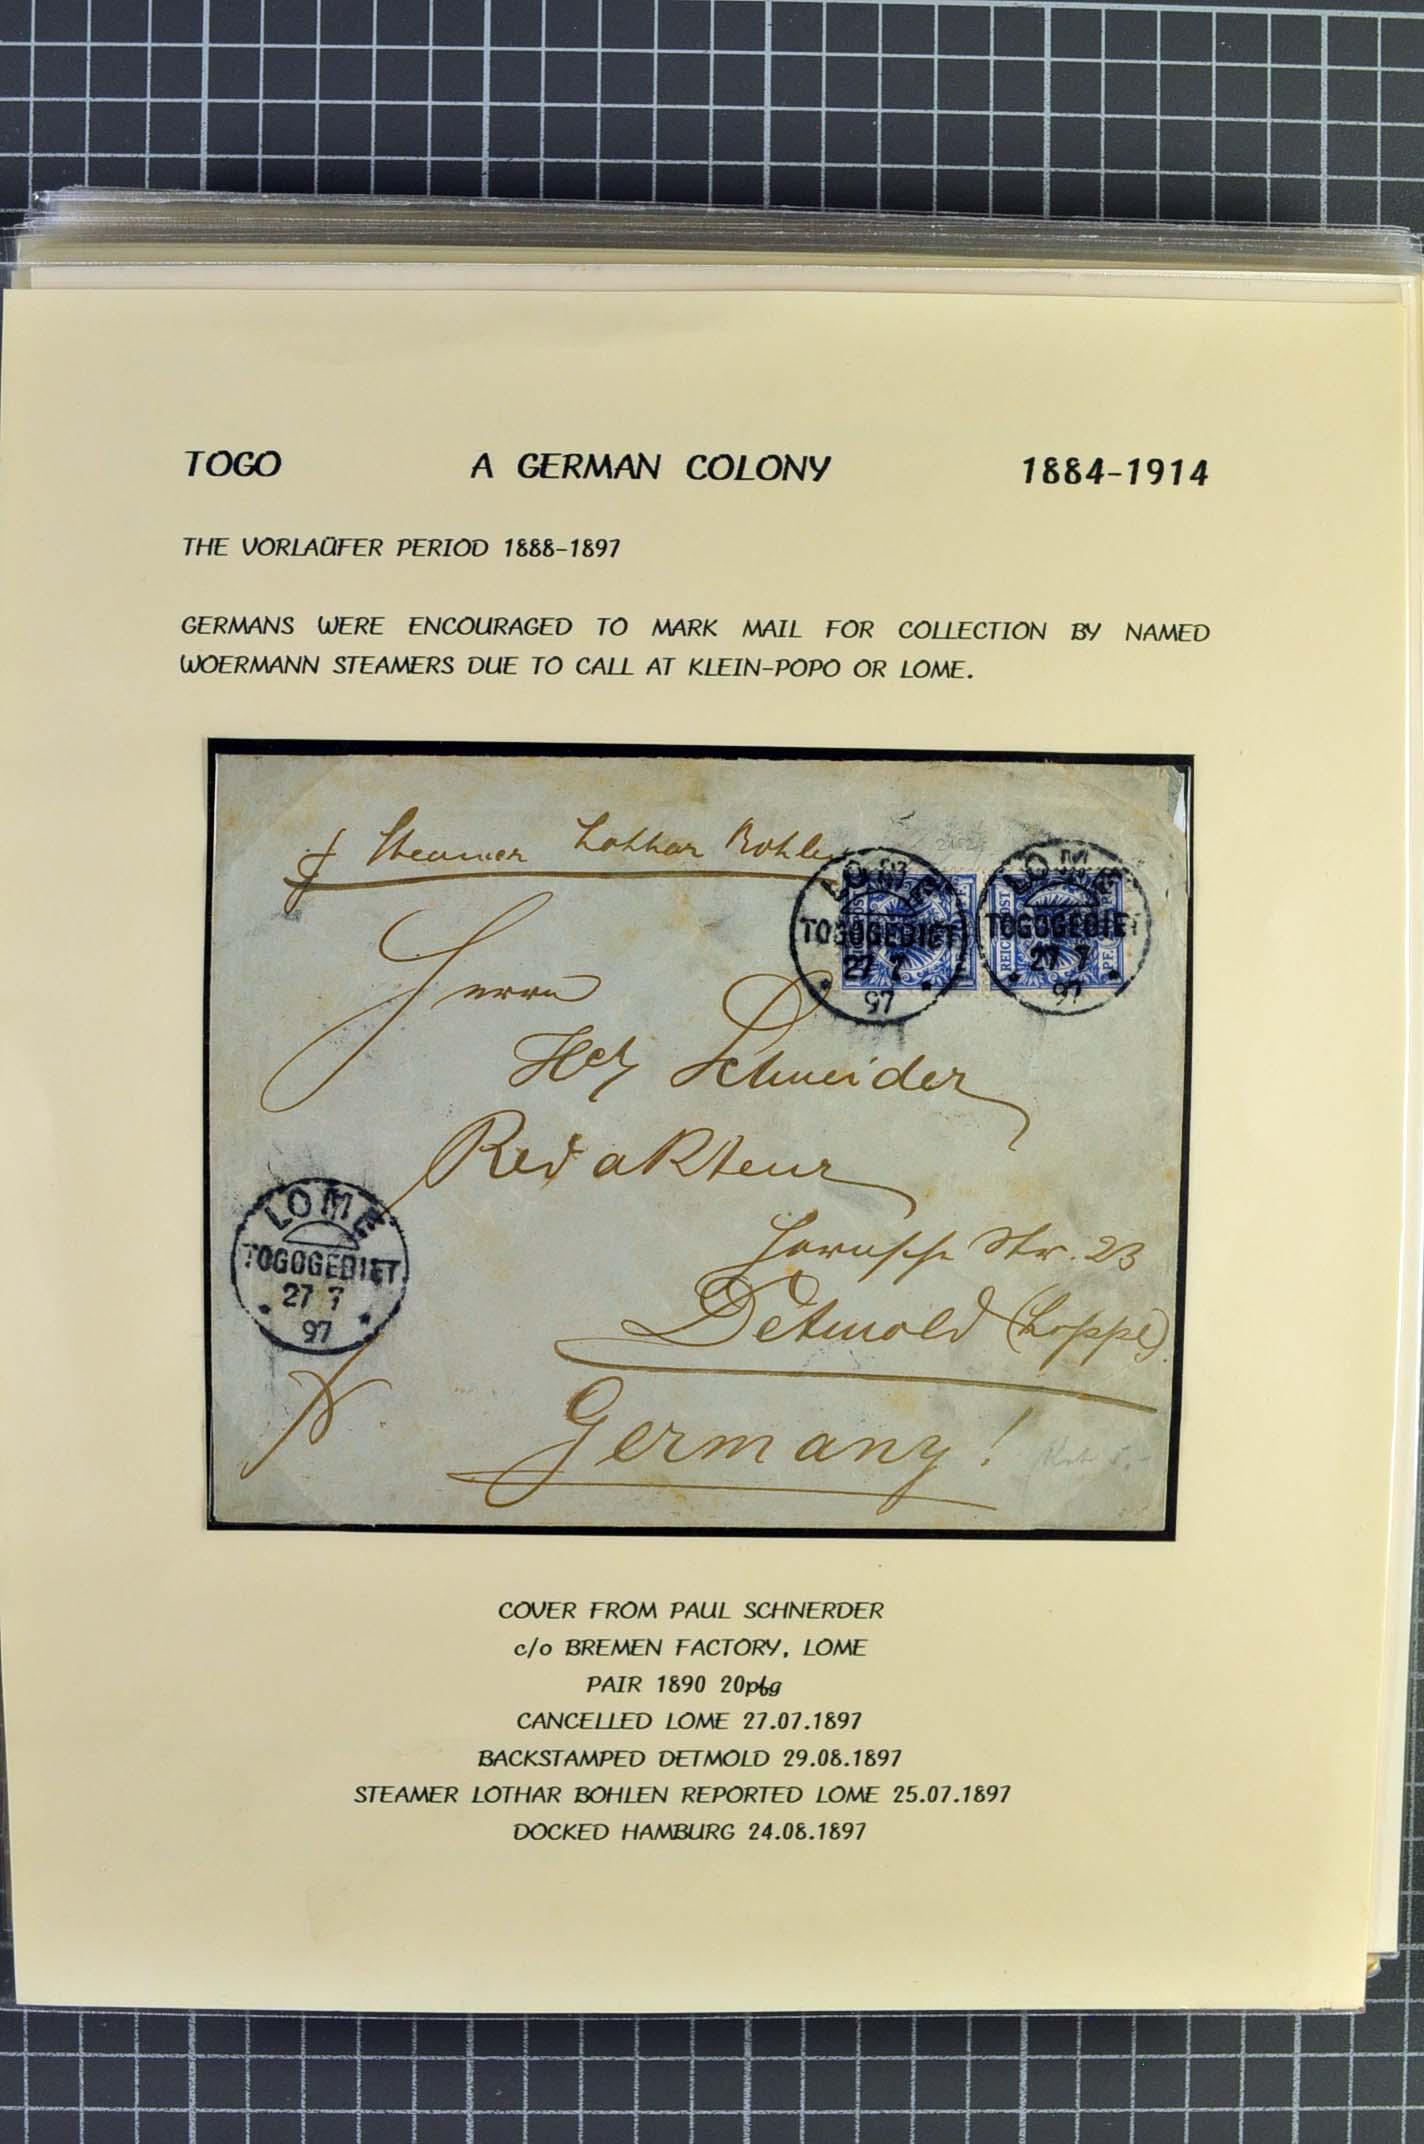 TOGO A GERMAN COLONY 1884-1914
THE VORLAÜFER PERIOD 1888-1897
GERMANS WERE ENCOURAGED TO MARK MAIL FOR COLLECTION BY NAMED
WOERMANN STEAMERS DUE TO CALL AT KLEIN-POPO OR LOME.
Steamer Lothar Bohlen
LOME
TOGOGEBIET
27 7
97
LOME
TOGOGEBIET
27 7
97
REICHSPOST
Herrn
Schneider
Redakteur
Str. 23
Detmold (Lippe)
Germany!
LOME
TOGOGEBIET
27 7
97
COVER FROM PAUL SCHNERDER
c/o BREMEN FACTORY, LOME
PAIR 1890 20pfg
CANCELLED LOME 27.07.1897
BACKSTAMPED DETMOLD 29.08.1897
STEAMER LOTHAR BOHLEN REPORTED LOME 25.07.1897
DOCKED HAMBURG 24.08.1897